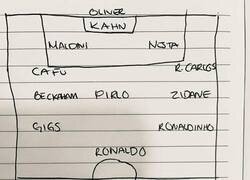 OLIVER
KAHN
MALDINI NESTA
CAFU R.CARLOS
BECKHAM PIRLO ZIDANE
GIGS RONALDINHO
RONALDO